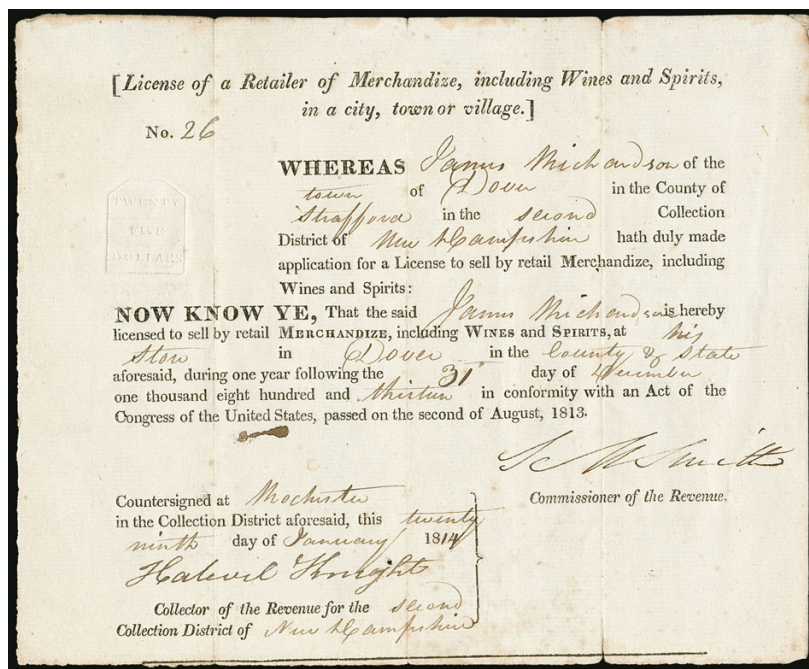 [License of a Retailer of Merchandize, including Wines and Spirits,
in a city, town or village.]
No. 26
TWENTY
FIVE
DOLLARS
WHEREAS James Richardson of the
town of Dover in the County of
Strafford in the second Collection
District of New Hampshire hath duly made
application for a License to sell by retail Merchandize, including
Wines and Spirits:
NOW KNOW YE, That the said James Richardson is hereby
licensed to sell by retail MERCHANDIZE, including WINES and SPIRITS, at his
store in Dover in the County & State
aforesaid, during one year following the 31 day of December
one thousand eight hundred and thirteen in conformity with an Act of the
Congress of the United States, passed on the second of August, 1813.
Smith
Commissioner of the Revenue.
Countersigned at Rochester
in the Collection District aforesaid, this twenty
ninth day of January 1814
Knight
Collector of the Revenue for the second
Collection District of New Hampshire